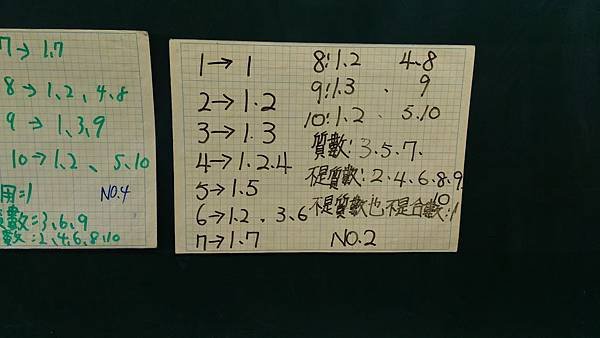 7→1.7
8→1、2、4、8
9→1、3、9
10→1、2、5、10
用:1
NO.4
數:3、6、9
數:2、4、6、8、10
1→1
2→1.2
3→1.3
4→1.2.4
5→1.5
6→1.2、3、6
7→1.7
8:1、2 4、8
9:1.3、9
10:1、2 5.10
質數:3、5、7、
不是質數:2、4、6、8、9、
10
不是質數也不是合數:1
NO.2